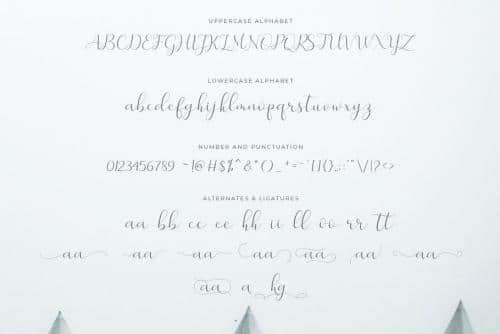 UPPERCASE ALPHABET
ABCDEFGHIJKLMNOPQRSTUVWXYZ
LOWERCASE ALPHABET
abcdefghijklmnopqrstuvwxyz
NUMBER AND PUNCTUATION
0123456789 ~!@#$%^&*()_+=-`[]{},.;:'"\/|?<>
ALTERNATES & LIGATURES
aa bb cc ee hh ii ll oo rr tt
aa aa aa aa aa aa aa
aa a hg